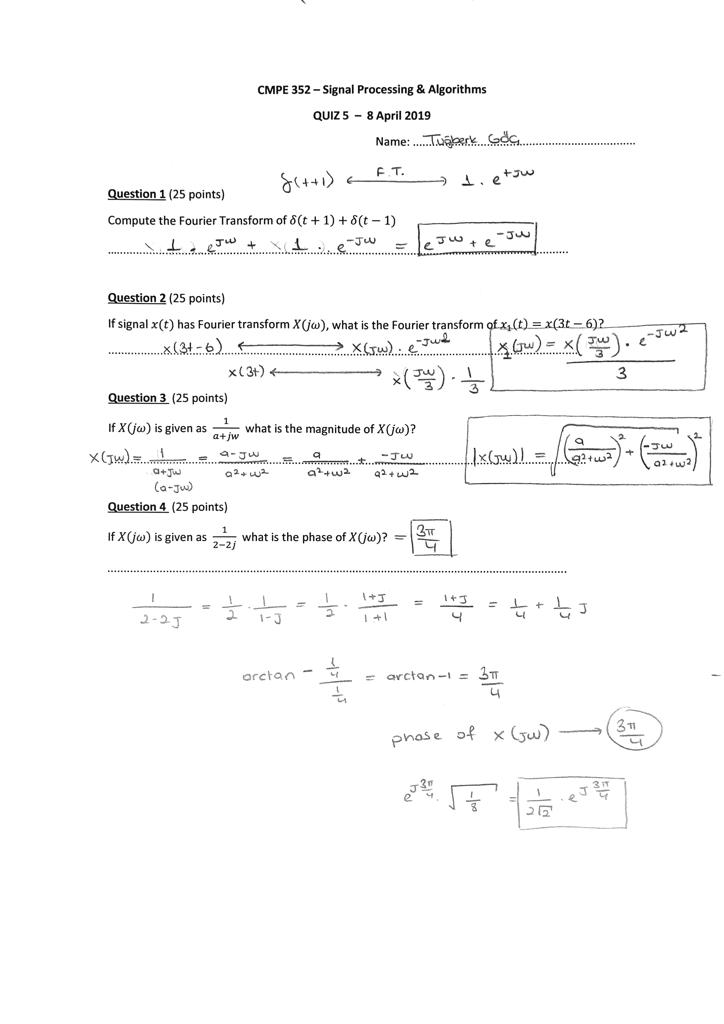 CMPE 352 – Signal Processing & Algorithms
QUIZ 5 – 8 April 2019
Name: ..... Tuğberk Göç .....
δ(t+1) ⟷ F.T. 1 . e^+Jω
Question 1 (25 points)
Compute the Fourier Transform of δ(t + 1) + δ(t − 1)
1 . e^Jω + 1 . e^-Jω = e^Jω + e^-Jω
Question 2 (25 points)
If signal x(t) has Fourier transform X(jω), what is the Fourier transform of x₁(t) = x(3t − 6)?
x(3t-6) ⟷ x(Jω) . e^-Jω2 x₁(Jω) = x(Jω/3) . e^-Jω2 / 3
x(3t) ⟷ x(Jω/3) . 1/3
Question 3 (25 points)
If X(jω) is given as 1/(a+jw) what is the magnitude of X(jω)?
x(Jω) = 1/(a+Jω) = (a-Jω)/(a²+ω²) = a/(a²+ω²) + -Jω/(a²+ω²) |x(Jω)| = √((a/(a²+ω²))² + (-Jω/(a²+ω²))²)
(a-Jω)
Question 4 (25 points)
If X(jω) is given as 1/(2−2j) what is the phase of X(jω)? = 3π/4
1/(2-2J) = 1/2 . 1/(1-J) = 1/2 . (1+J)/(1+1) = (1+J)/4 = 1/4 + 1/4 J
arctan - (1/4)/(1/4) = arctan-1 = 3π/4
phase of x(Jω) → 3π/4
e^J3π/4 . √(1/8) = 1/(2√2) . e^J 3π/4